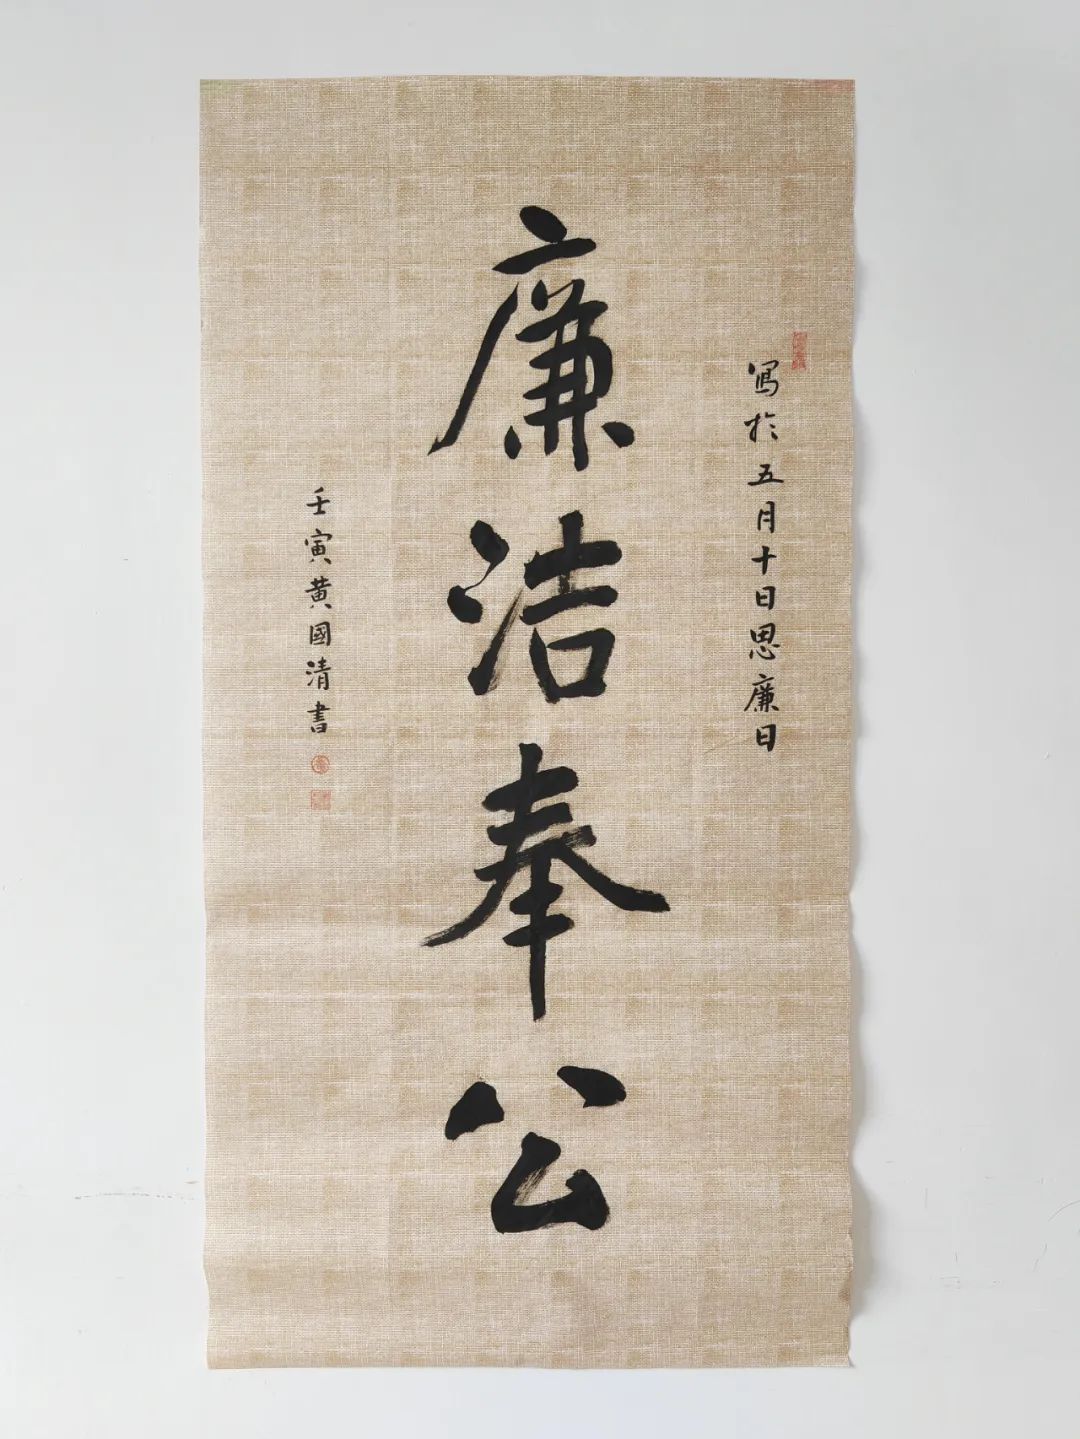 寫於五月十日思廉日
廉洁奉公
壬寅黄國清書